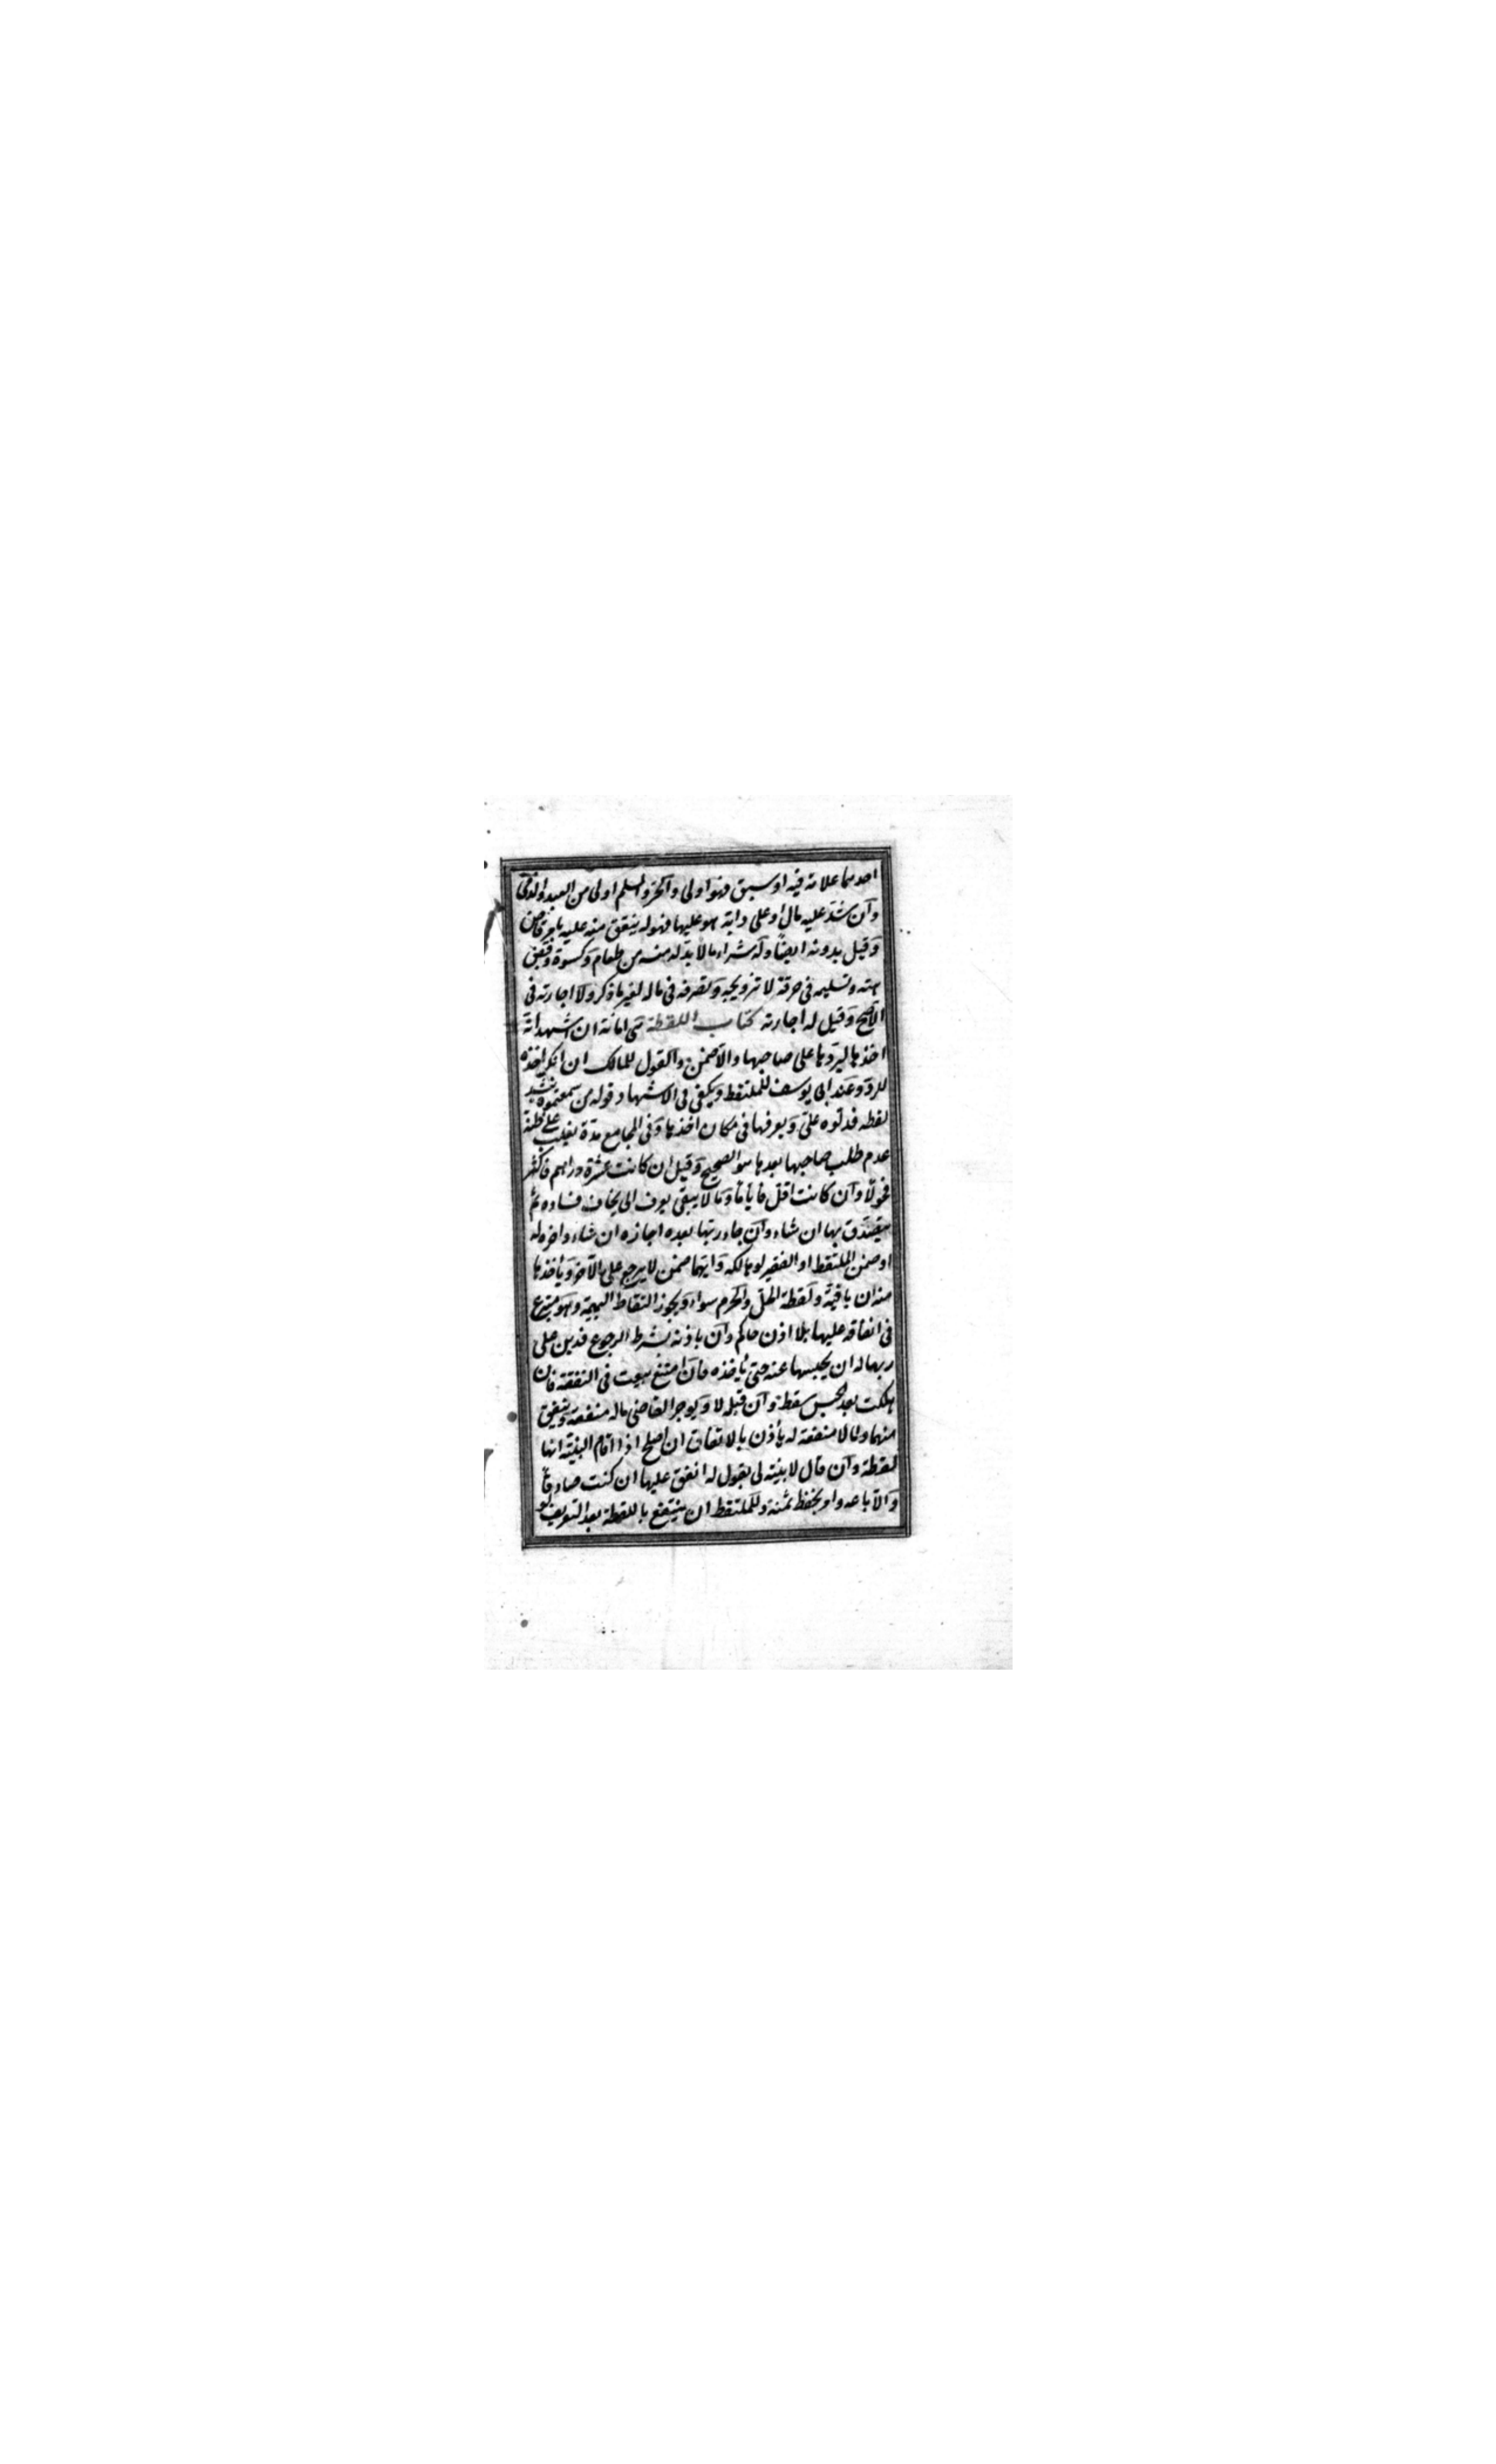 احدهما علامة فيه او سبق فهو اولى والحر والمسلم اولى من العبد والذمى
وان شد عليه مال او على دابة هو عليها فهو له ينفق منه عليه بامر قاض
وقيل بدونه ايضا وله شراء ما لا بد له منه من طعام وكسوة وقبض
هبته وتسليمه فى حرفة لا تزويجه وتصرفه فى ماله لغير ما ذكر ولا اجارته فى
الاصح وقيل له اجارته كتاب اللقطة هى امانة ان اشهد انه
اخذها ليردها على صاحبها والا ضمن والقول للمالك ان انكر اخذه
للرد وعند ابى يوسف للملتقط ويكفى فى الاشهاد قوله من سمعتموه ينشد
لقطة فدلوه على ويعرفها فى مكان اخذها وفى المجامع مدة يغلب على ظنه
عدم طلب صاحبها بعدها هو الصحيح وقيل ان كانت عشرة دراهم فاكثر
فحولا وان كانت اقل فاياما وما لا يبقى يعرف الى يخاف فساده ثم
يتصدق بها ان شاء وان جاء ربها بعده اجازه ان شاء واجره له
او ضمن الملتقط او الفقير لو هالكة وايهما ضمن لا يرجع على الآخر وياخذها
منه ان باقية ولقطة الحل والحرم سواء ويجوز التقاط البهيمة وهو متبرع
فى انفاقه عليها بلا اذن حاكم وان باذنه بشرط الرجوع فدين على
ربها له ان يحبسها عنه حتى ياخذه فان امتنع بيعت فى النفقة فان
هلكت بعد الحبس سقطت وان قبله لا ويوجر القاضى ما له منفعة وينفق
منها وما لا منفعة له ياذن بالانفاق ان اصلح اذا اقام البينة انها
لقطة وان قال لا بينة لى يقول له انفق عليها ان كنت صادقا
والا باعه وامر بحفظ ثمنه وللملتقط ان ينتفع باللقطة بعد التعريف لو